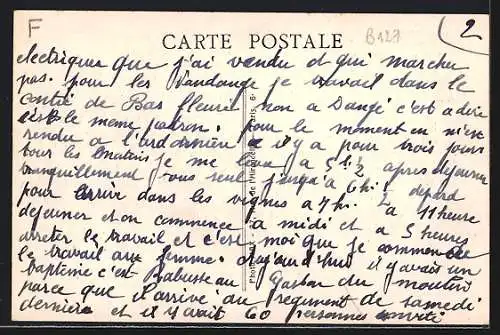 F
2
CARTE POSTALE
B127
electrique que j'ai vendu et qui marche
pas. pour les Vandange je travail dans le
contré de Bas fleurie non a Dangé c'est a dire
le meme patron. pour le moment on n'est
rendu a il y a pour trois jours
tour les matin je me leve a 5 h ½ apres dejeuner
tranquillement tous seul jusqu'a 6 h ½ depard
pour arrivé dans les vignes a 7 h. ½ a 11 heure
dejeuner et on commence a midi et a 5 heures
arreter le travail et c'est moi que je commence
le travail aux femme. aujourd'hui il y avais un
baptême c'est Rabusseau Gaston du moulin
parce que il arrive du regiment de samedi
derniere et il y avait 60 personnes invité